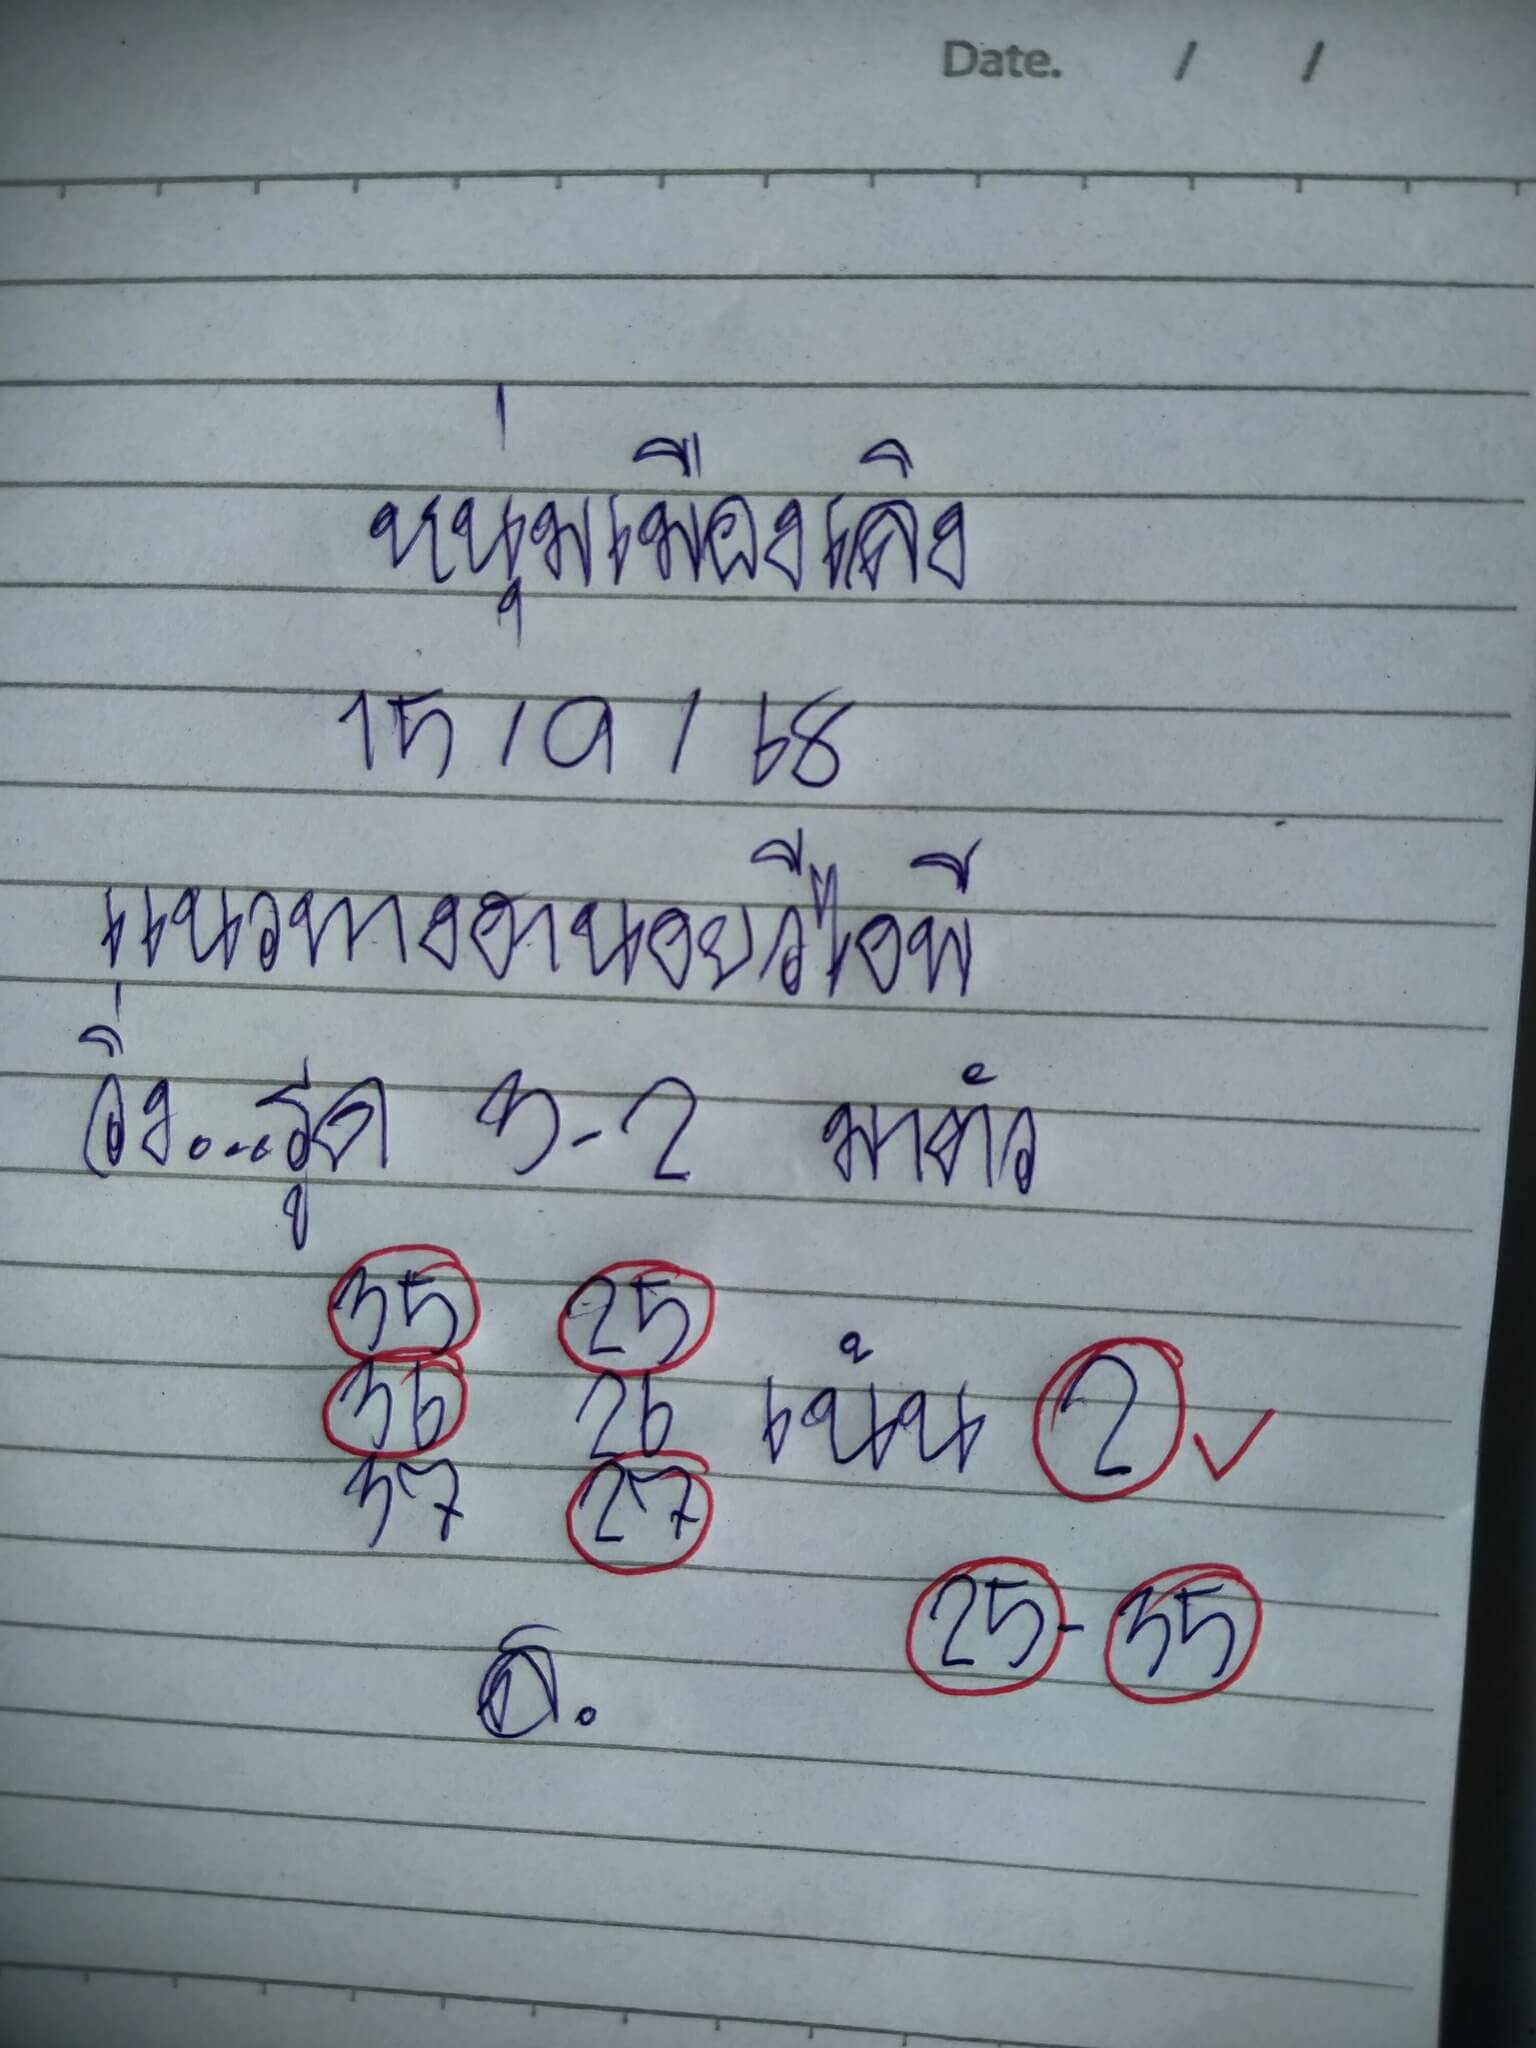 Date. / /
หนุ่มเมืองเลิง
15 / 9 / 68
แนวทางฮานอยวีไอพี
วิ่ง...รูด 3-2 มาตัว
35 25
36 26 เน้น 2
37 27
25 - 35